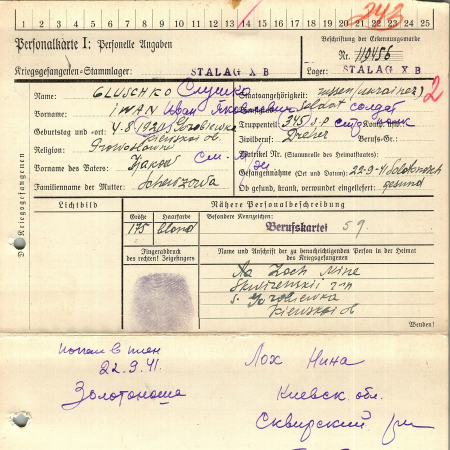 1 2 3 4 5 6 7 8 9 10 11 12 13 14 15 16 17 18 19 20 21 22 23 24 25
243
Personalkarte I: Personelle Angaben
Beschriftung der Erkennungsmarke
Nr. 119456
Kriegsgefangenen-Stammlager: STALAG X B
Lager: STALAG X B
Name: GLUSCHKO Глушко
Staatsangehörigkeit: russen (ukrainer)
2
Vorname: IWAN Иван Яковлевич
Dienstgrad: Soldat солдат
Geburtstag und -ort: 4.5.1920
Truppenteil: 345 J.P. стр. полк Komp. usw.:
Religion:
Zivilberuf: Dreher Berufs-Gr.:
Vorname des Vaters:
Matrikel Nr. (Stammrolle des Heimatstaates)
Gefangennahme (Ort und Datum): 22-9-41 Solotonosch
Familienname der Mutter:
Ob gesund, krank, verwundet eingeliefert: gesund
Lichtbild
Nähere Personalbeschreibung
Größe
Haarfarbe
Besondere Kennzeichen:
175 blond
Berufskartei 59.
Fingerabdruck
des rechten! Zeigefingers
Name und Anschrift der zu benachrichtigenden Person in der Heimat
des Kriegsgefangenen
Loch Nine
Kiewskoi ob
Wenden!
попал в плен
22.9.41.
Золотоноша
Лох Нина
Киевск. обл.
Сквирский р-н